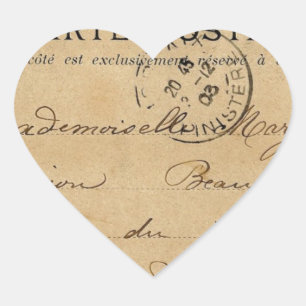 RTE OSTA
côté est exclusivement réservé à
20 45
12
03
MINISTERE
ademoiselle Marg
ion Beau
du